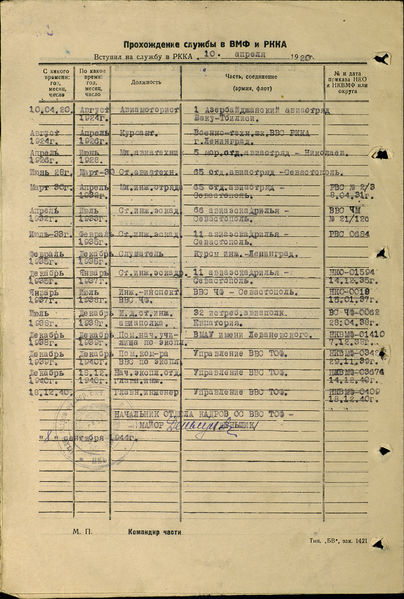 Прохождение службы в ВМФ и РККА
Вступил на службу в РККА 10. апреля 1920г.
С какого времени: год, месяц, число
По какое время: год, месяц, число
Должность
Часть, соединение (армия, флот)
№ и дата приказа НКО и НКВМФ или округа
10.04.20. Август 1924г. Авиамоторист 1 Азербайджанский авиаотряд Баку-Тбилиси.
Август 1924г. Апрель 1926г. Курсант. Военно-техн.шк.ВВС РККА г.Ленинград.
Апрель 1926г. Июль 1928. Мл.авиатехн. 5 мор.отд.авиаотряд - Николаев.
Июль 28г. Март-30 Ст.авиатехн. 65 отд.авиаотряд -Севастополь.
Март 30г. Апрель 1932г. Мл.инж.отряда 65 отд.авиаотряд - Севастополь. РВС № 2/3 8.04.31г.
Апрель 1932г. Июль 1933г. Ст.инж.эскад. 66 авиаэскадрилья - Севастополь. ВВС ЧМ № 21/120
Июль-33г. Февраль 1935г. Ст.инж.эскад. 11 авиаэскадрилья - Севастополь. РВС 0624
Февраль 1935г. Декабрь 1935г. Слушатель Курсы инж.-Ленинград.
Декабрь 1935г. Январь 1937г. Ст.инж.эскадр. 11 авиаэскадрилья - Севастополь. НКО-01594 14.12.35г.
Январь 1937г. Июль 1938г. Инж.-инспект. ВВС ЧФ. ВВС ЧФ - Севастополь. НКО-0018 15.01.37г.
Июль 1938г. Декабрь 1938г. И.д.ст.инж. авиаполка. 32 истреб.авиаполк. Евпатория. ВС ЧФ-0062 23.04.38г.
Декабрь 1938г. Декабрь 1939г. Пом.нач.учи-лища по эксп. ВМАУ имени Леваневского. НКВМФ-01410 7.12.38г.
Декабрь 1939г. Декабрь 1940г. Пом.ком-ра ВВС по экспл. Управление ВВС ТОФ. 29.11.39г.
Декабрь 1940г. 18.12. 1940г. Нач.экспл.отд. Главн.инж. Управление ВВС ТОФ. НКВМФ-03674 14.12.40г.
18.12.40г. Главн.инженер Управление ВВС ТОФ. НКВМФ-0409 18.12.40г.
НАЧАЛЬНИК ОТДЕЛА КАДРОВ ОС ВВС ТОФ -
МАЙОР
сентября 1944г.
М. П. Командир части
Тип. „БВ", зак. 1421